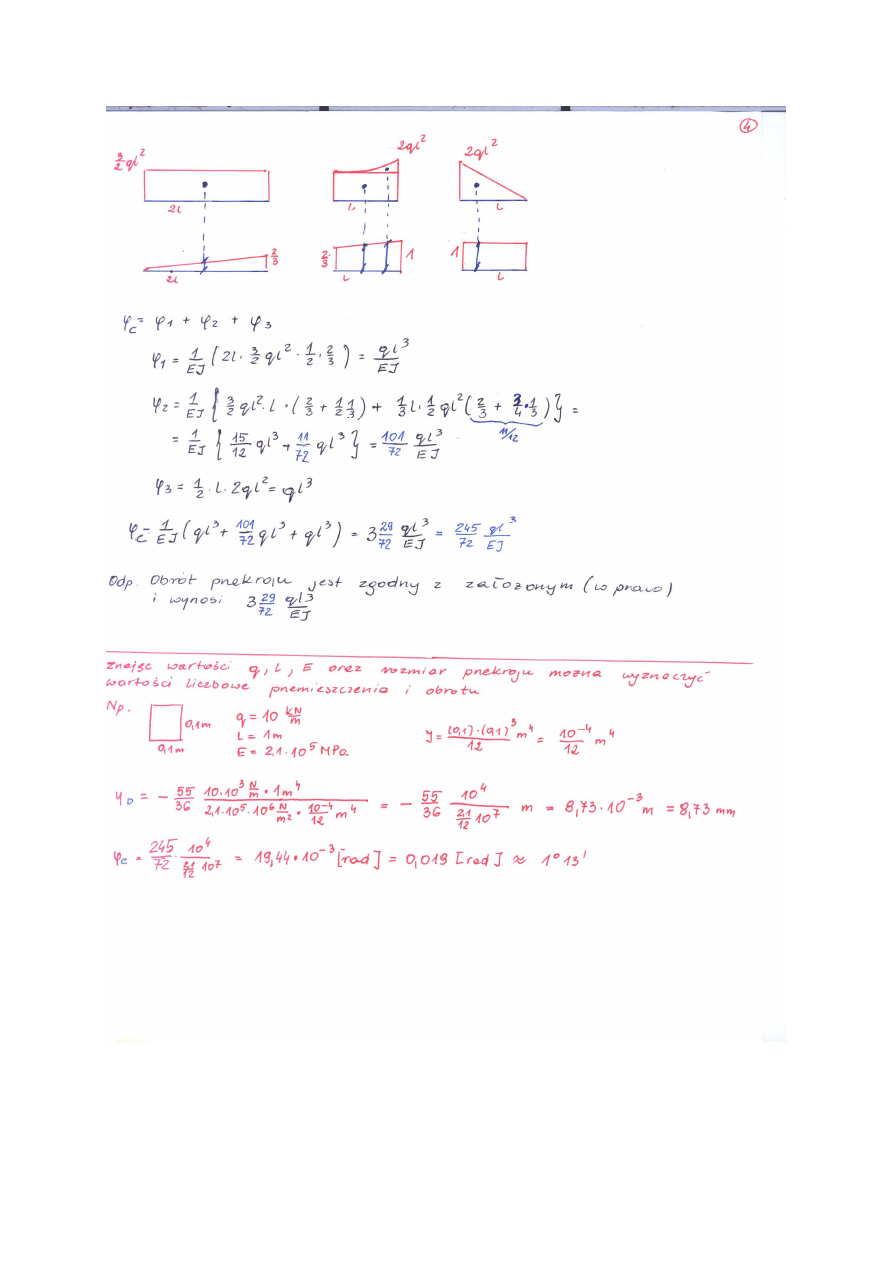 ④
3/2 ql² 2ql² 2ql²
2l l l
2l 2/3 2/3 l 1 1 l
φc = φ1 + φ2 + φ3
φ1 = 1/EJ (2l · 3/2 ql² · 1/2 · 2/3) = ql³/EJ
φ2 = 1/EJ { 3/2 ql² · l · (2/3 + 1/2 1/3) + 1/3 l · 1/2 ql² (2/3 + 3/4 · 1/3) } =
11/12
= 1/EJ { 15/12 ql³ + 11/72 ql³ } = 101/72 ql³/EJ
φ3 = 1/2 · l · 2ql² = ql³
φc = 1/EJ (ql³ + 101/72 ql³ + ql³) = 3 29/72 ql³/EJ = 245/72 ql³/EJ
Odp. Obrót przekroju jest zgodny z założonym (w prawo)
i wynosi 3 29/72 ql³/EJ
Znając wartości q, l, E oraz rozmiar przekroju można wyznaczyć
wartości liczbowe przemieszczenia i obrotu
Np. 0,1m q = 10 kN/m
L = 1m J = (0,1)·(0,1)³/12 m⁴ = 10⁻⁴/12 m⁴
0,1m E = 2,1·10⁵ MPa
yD = - 55/36 10·10³ N/m · 1m⁴ / 2,1·10⁵·10⁶ N/m² · 10⁻⁴/12 m⁴ = - 55/36 10⁴ / 2,1/12 10⁷ m = 8,73·10⁻³ m = 8,73 mm
φc = 245/72 · 10⁴ / 2,1/12 10⁷ = 19,44·10⁻³ [rad] = 0,019 [rad] ≈ 1°13'